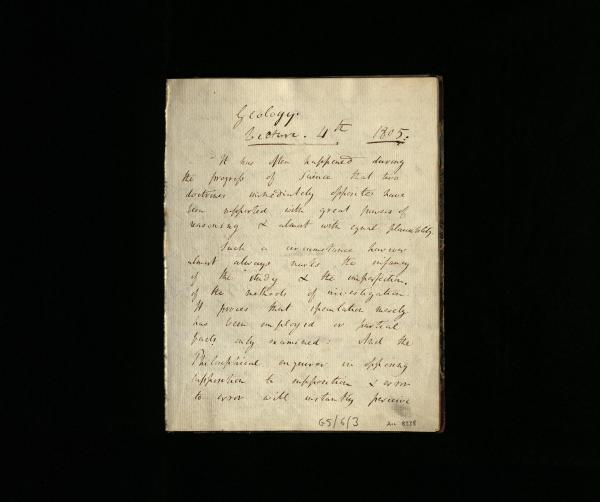 Geology.
Lecture. 4th 1805.
It has often happened during
the progress of Science that two
doctrines immediately opposite have
been supported with great powers of
reasoning & almost with equal plausibility.
Such a circumstance however
almost always marks the infancy
of the study & the imperfection
of the methods of investigation.
It proves that speculation merely
has been employed or partial
facts only examined: And the
Philosophical enquirer in opposing
supposition to supposition & error
to error will instantly perceive
G5/6/3
8338